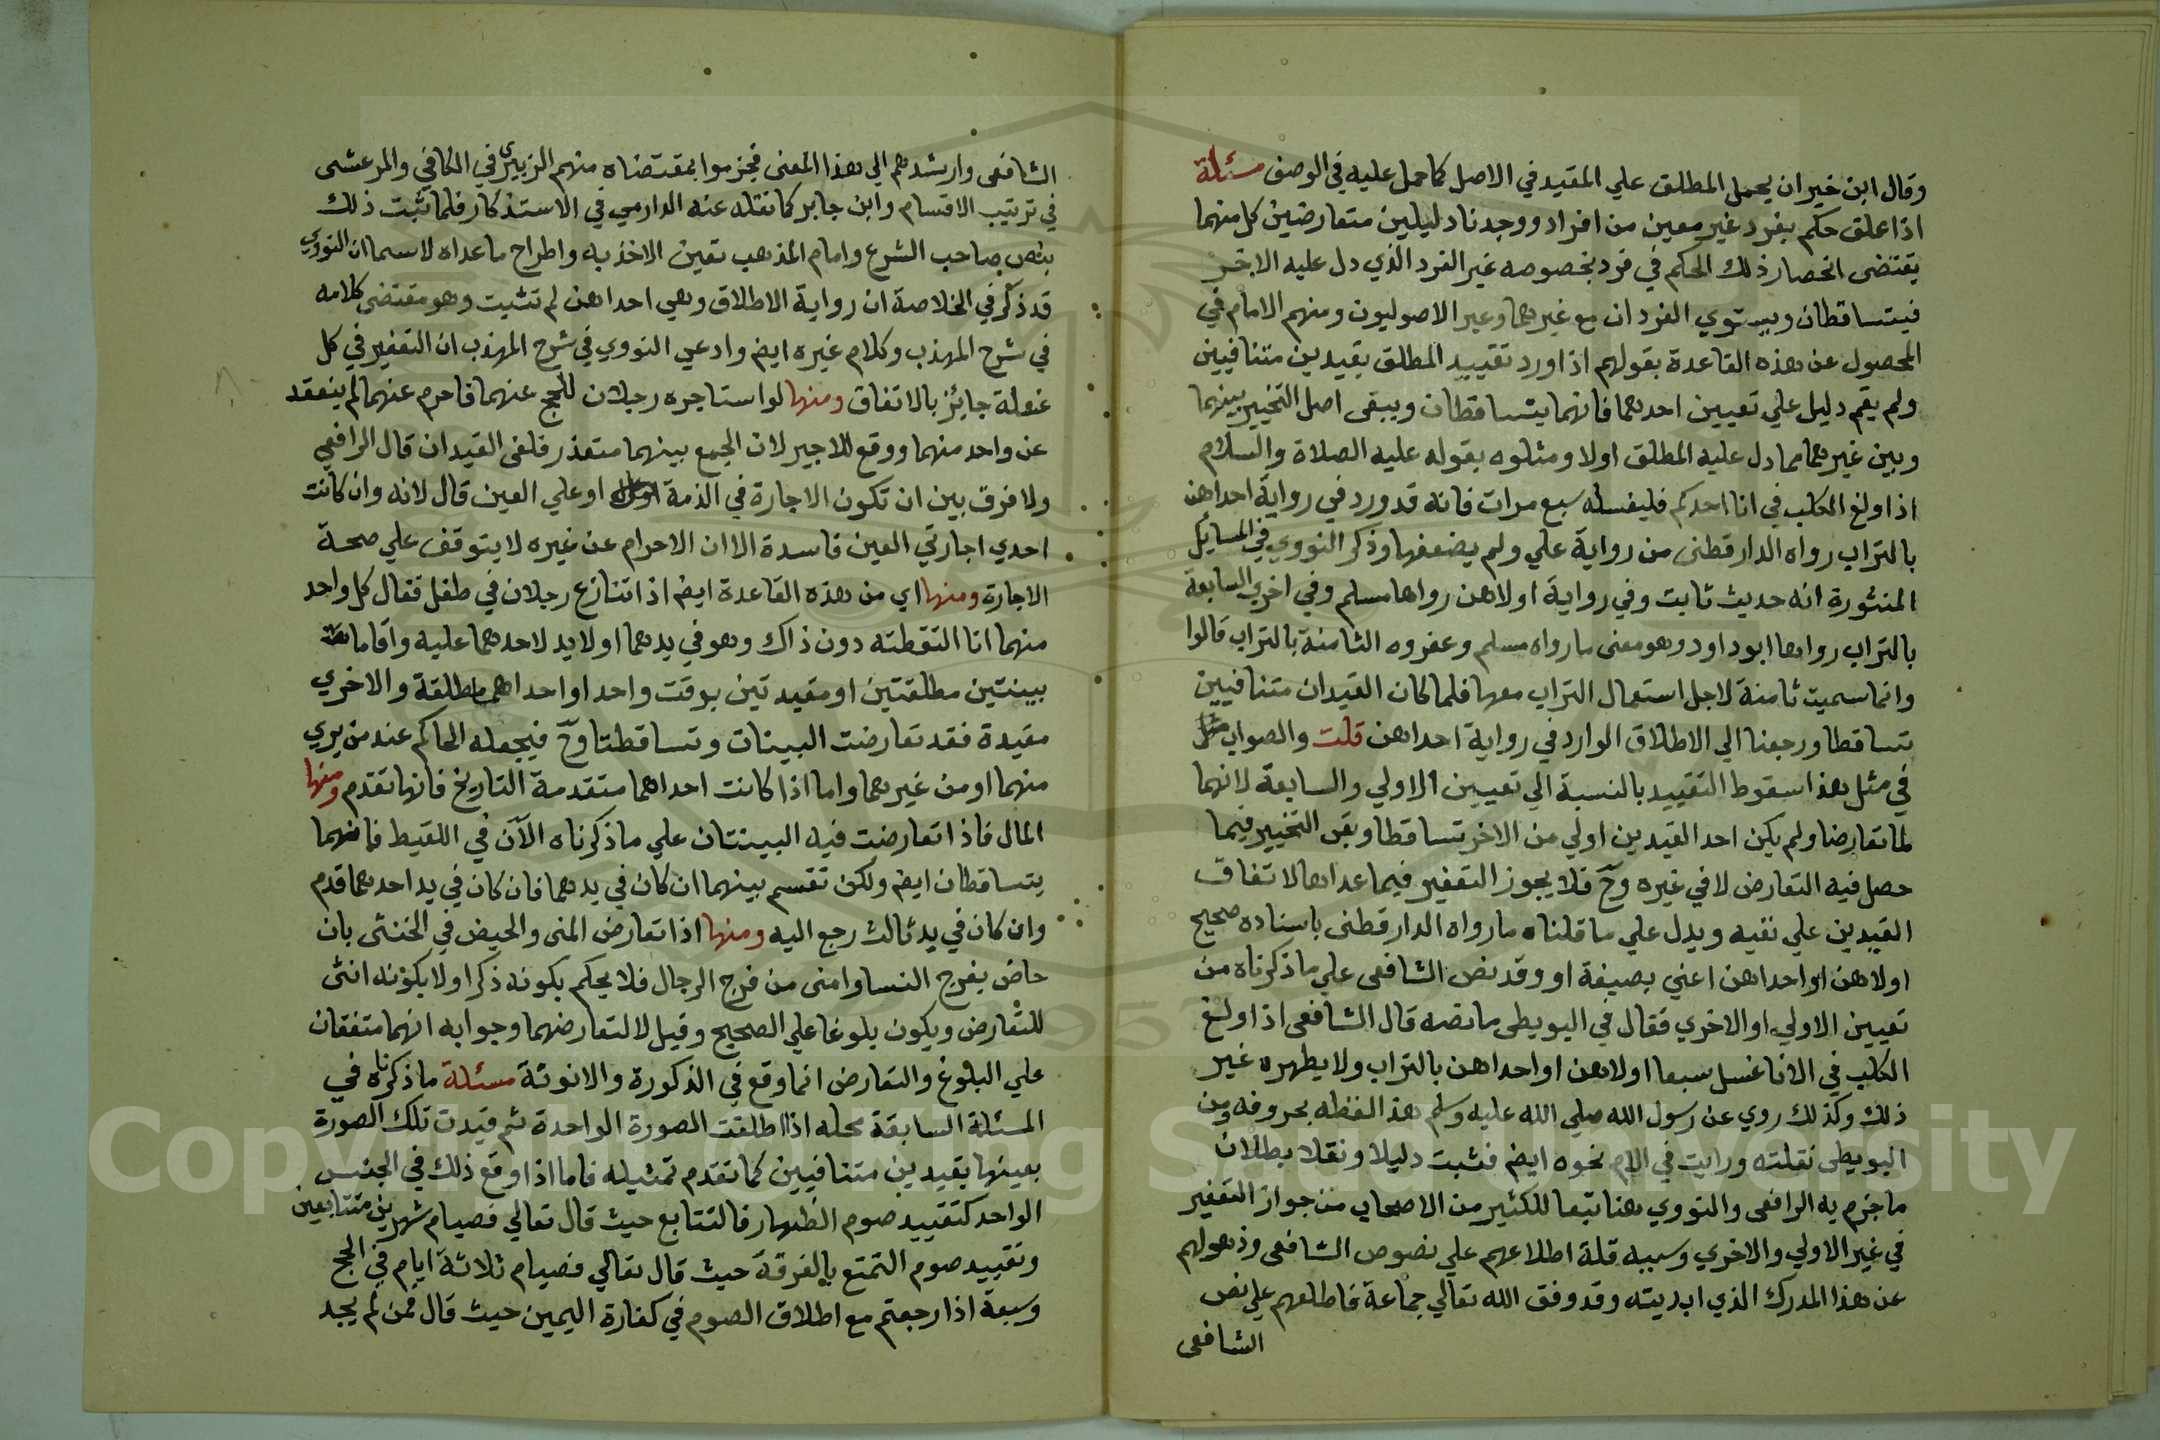 وقال ابن خيران يحمل المطلق علي المقيد في الاصل كما حمل عليه في الوصف مسئلة
اذا علق حكم بفرد غير معين من افراد ووجدنا دليلين متعارضين كل منهما
يقتضى انحصار ذلك الحكم في فرد بخصوصه غير الفرد الذي دل عليه الاخر
فيتساقطان ويستوي الفردان مع غيرهما وعبر الاصوليون ومنهم الامام في
المحصول عن هذه القاعدة بقولهم اذا ورد تقييد المطلق بقيدين متنافيين
ولم يقم دليل علي تعيين احدهما فانهما يتساقطان ويبقى اصل التخيير بينهما
وبين غيرهما مما دل عليه المطلق اولا ومثلوه بقوله عليه الصلاة والسلام
اذا ولغ الكلب في انا احدكم فليغسله سبع مرات فانه قد ورد في رواية احداهن
بالتراب رواه الدارقطنى من رواية علي ولم يضعفها وذكر النووي في المسايل
المنثورة انه حديث ثابت وفي رواية اولاهن رواها مسلم وفي اخري السابعة
بالتراب رواها ابو داود وهو معنى ما رواه مسلم وعفروه الثامنة بالتراب قالوا
وانما سميت ثامنة لاجل استعمال التراب معها فلما كان القيدان متنافيين
تساقطا ورجعنا الي الاطلاق الوارد في رواية احداهن قلت والصواب
في مثل هذا سقوط التقييد بالنسبة الي تعيين الاولي والسابعة لانهما
لما تعارضا ولم يكن احد القيدين اولي من الاخر تساقطا وبقى التخيير فيما
حصل فيه التعارض لا في غيره وح فلا يجوز التعفير فيما عداها لاتفاق
القيدين علي نفيه ويدل علي ما قلناه ما رواه الدارقطنى باسناده صحيح
اولاهن او احداهن اعني بصيغة او وقد نص الشافعى علي ما ذكرناه من
تعيين الاولي او الاخري فقال في البويطى ما نصه قال الشافعى اذا ولغ
الكلب في الانا غسل سبعا اولاهن او احداهن بالتراب ولا يطهره غير
ذلك وكذلك روي عن رسول الله صلي الله عليه وسلم هذا لفظه بحروفه ومن
البويطى نقلته ورايت في الام نحوه ايضا فثبت دليلا ونقلا بطلان
ما جزم به الرافعى والنووي هنا تبعا للكثير من الاصحاب من جواز التعفير
في غير الاولي والاخري وسببه قلة اطلاعهم علي نصوص الشافعى وذهولهم
عن هذا المدرك الذي ابديته وقد وفق الله تعالي جماعة فاطلعهم علي نص
الشافعى
الشافعى وارشدهم الي هذا المعنى فجزموا بمقتضاه منهم الزبيري في الكافي والمرعشى
في ترتيب الاقسام وابن جابر كما نقله عنه الدارمي في الاستذكار فلما ثبت ذلك
بنص صاحب الشرع وامام المذهب تعين الاخذ به واطراح ما عداه لاسيما ان النووي
قد ذكر في الخلاصة ان رواية الاطلاق وهي احداهن لم تثبت وهو مقتضى كلامه
في شرح المهذب وكلام غيره ايضا وادعي النووي في شرح المهذب ان التعفير في كل
غسلة جايز بالاتفاق ومنها لو استاجره رجلان للحج عنهما فاحرم عنهما لم ينعقد
عن واحد منهما ووقع للاجير لان الجمع بينهما متعذر فلغى القيدان قال الرافعي
ولا فرق بين ان تكون الاجارة في الذمة او علي العين قال لانه وان كانت
احدي اجارتي العين فاسدة الا ان الاحرام عن غيره لا يتوقف علي صحة
الاجارة ومنها اي من هذه القاعدة ايضا اذا تنازع رجلان في طفل فقال كل واحد
منهما انا التقطته دون ذاك وهو في يدهما اولا يد لاحدهما عليه واقاما
بينتين مطلقتين او مقيدتين بوقت واحد او احداهما مطلقة والاخري
مقيدة فقد تعارضت البينات وتساقطتا وح فيجعله الحاكم عند من يري
منهما او من غيرهما واما اذا كانت احداهما متقدمة التاريخ فانها تقدم ومنها
المال فاذا تعارضت فيه البينتان علي ما ذكرناه الآن في اللقيط فانهما
يتساقطان ايضا ولكن تقسم بينهما ان كان في يدهما فان كان في يد احدهما قدم
وان كان في يد ثالث رجع اليه ومنها اذا تعارض المنى والحيض في الخنثى بان
حاض بفرج النسا وامنى من فرج الرجال فلا يحكم بكونه ذكرا ولا بكونه انثى
للتعارض ويكون بلوغا علي الصحيح وقيل لا لتعارضهما وجوابه انهما متفقان
علي البلوغ والتعارض انما وقع في الذكورة والانوثة مسئلة ما ذكرناه في
المسئلة السابقة محله اذا اطلقت الصورة الواحدة ثم قيدت تلك الصورة
بعينها بقيدين متنافيين كما تقدم تمثيله فاما اذا وقع ذلك في الجنس
الواحد كتقييد صوم الظهار فالتتابع حيث قال تعالي فصيام شهرين متتابعين
وتقييد صوم التمتع بالفرقة حيث قال تعالي فصيام ثلاثة ايام في الحج
وسبعة اذا رجعتم مع اطلاق الصوم في كفارة اليمين حيث قال فمن لم يجد